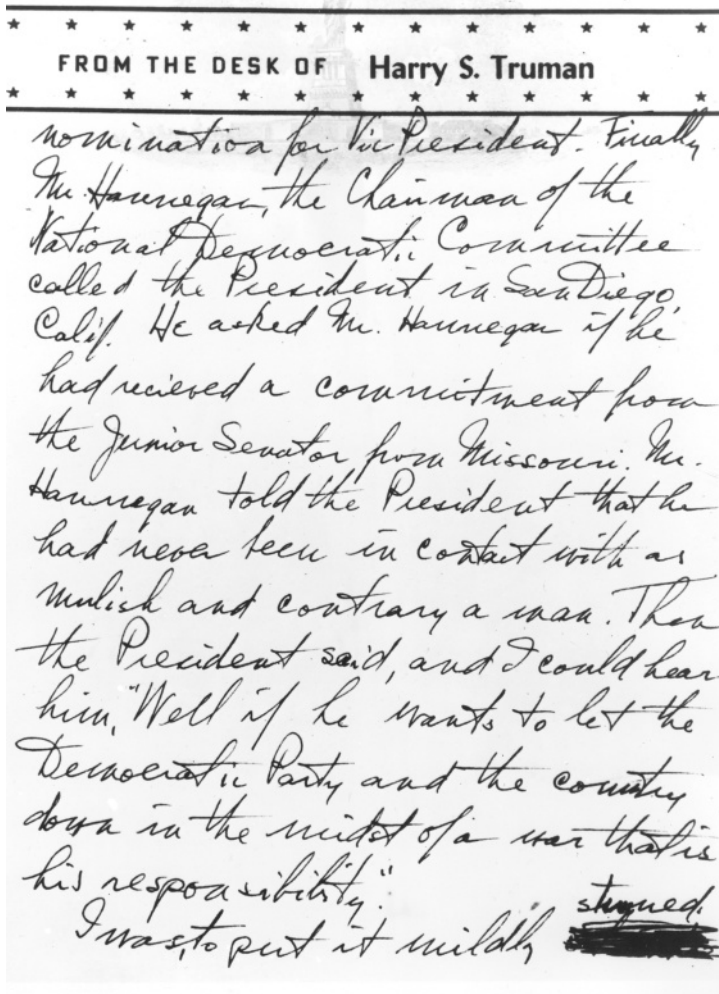 FROM THE DESK OF Harry S. Truman
nomination for Vic President. Finally
Mr. Hannegan, the Chairman of the
National Democratic Committee
called the President in San Diego,
Calif. He asked Mr. Hannegan if he
had recieved a commitment from
the Junior Senator from Missouri. Mr.
Hannegan told the President that he
had never been in contact with as
mulish and contrary a man. Then
the President said, and I could hear
him, "Well if he wants to let the
Democratic Party and the country
down in the midst of a war that is
his responsibility."
I was, to put it mildly stunned.